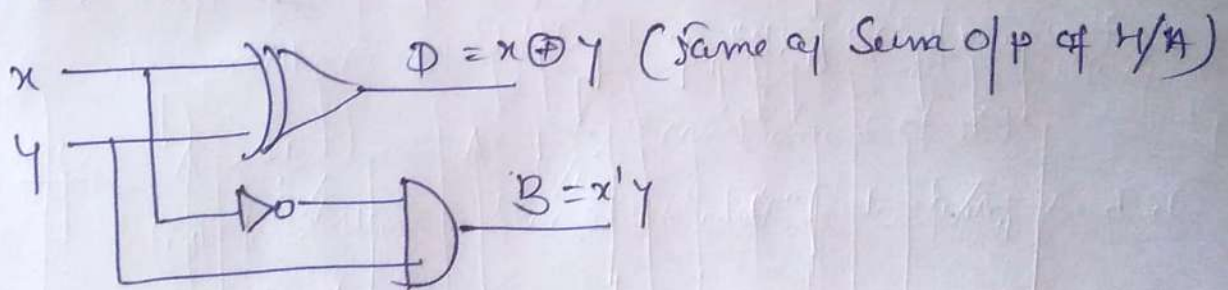 D = x ⊕ y (Same as Sum o/p of H/A)
x
y
B = x'y